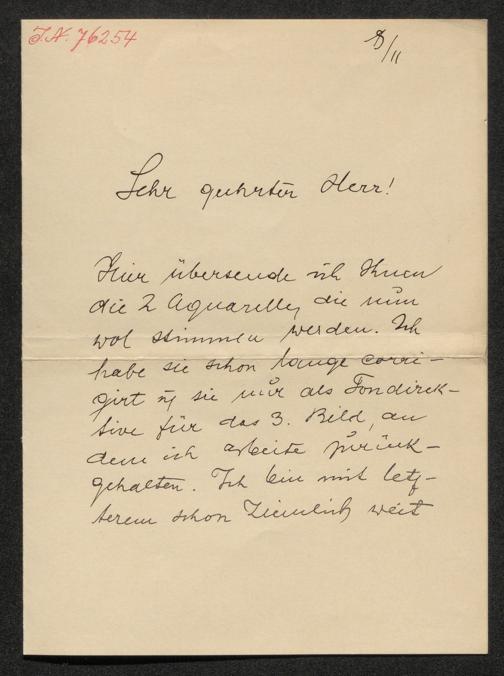 J.N. 76254
8/11
Sehr geehrter Herr!
Hier übersende ich Ihnen
die 2 Aquarelle, die nun
wol stimmen werden. Ich
habe sie schon lange corri-
girt u. sie nur als Tondirek-
tive für das 3. Bild, an
dem ich arbeite zurück-
gehalten. Ich bin mit letz-
terem schon ziemlich weit